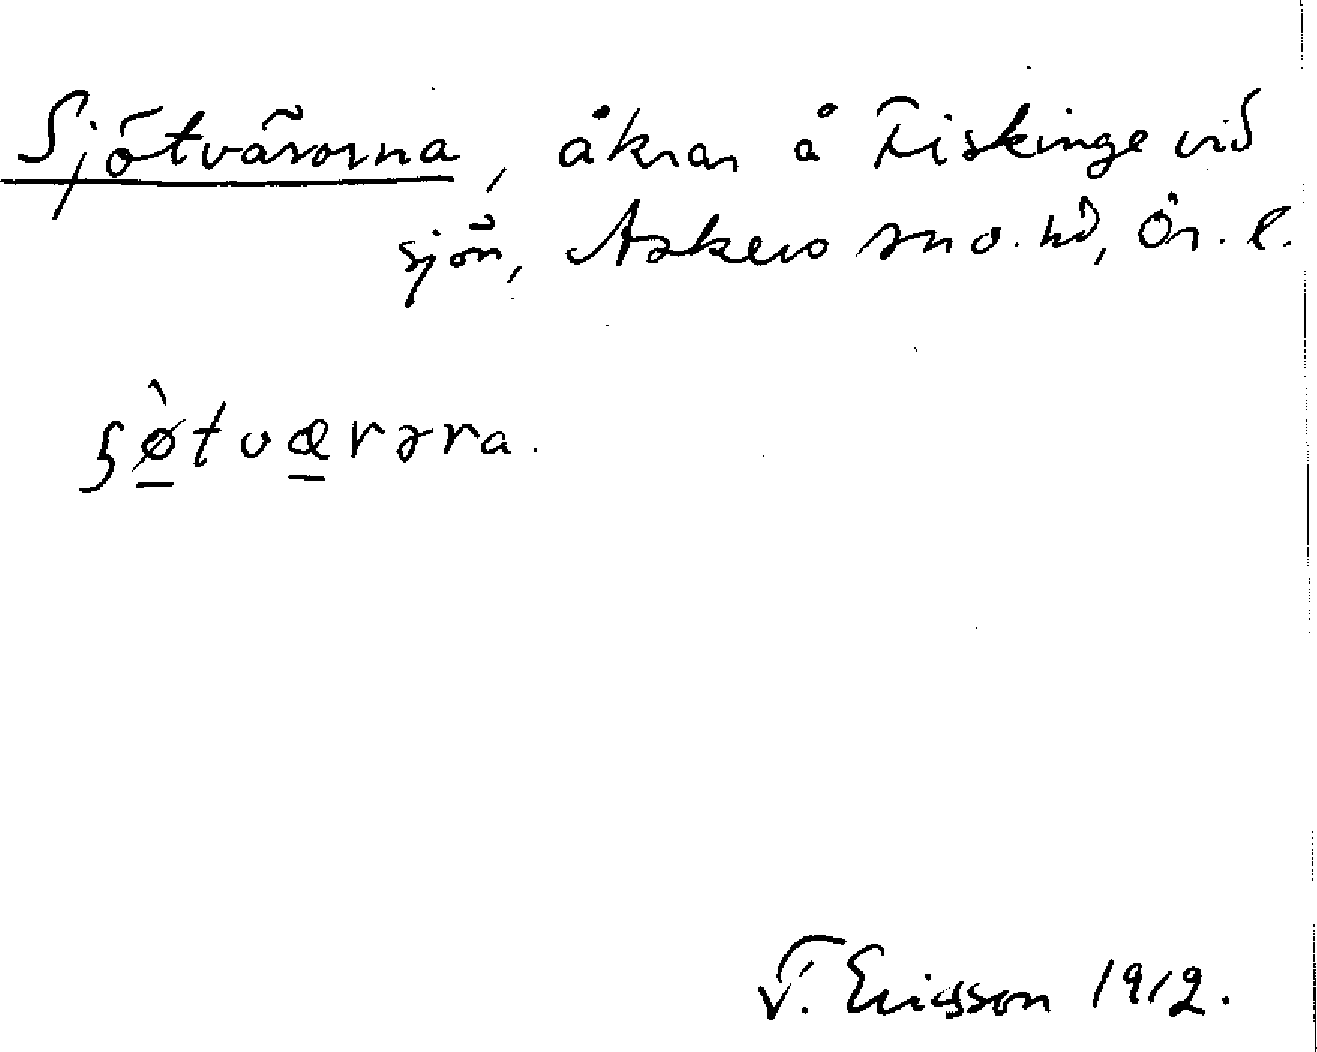 Sjötvärorna, åkrar å Fiskinge vid
sjön, Askers sn o. hd, Ör. l.
ʂø̀tværəra.
F. Ericsson 1912.